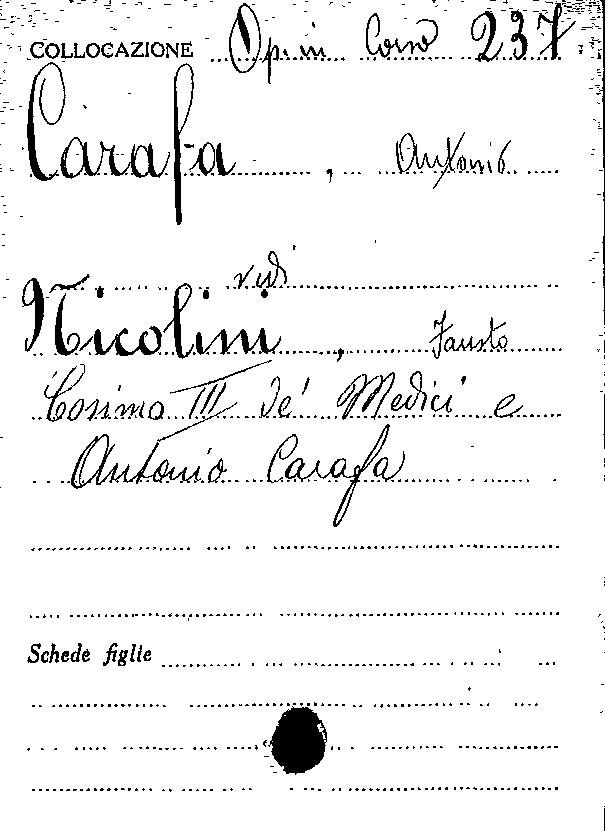 COLLOCAZIONE Op. in Corso 237
Carafa, Antonio
vedi
Nicolini, Fausto
Cosimo III de' Medici e
Antonio Carafa
Schede figlie